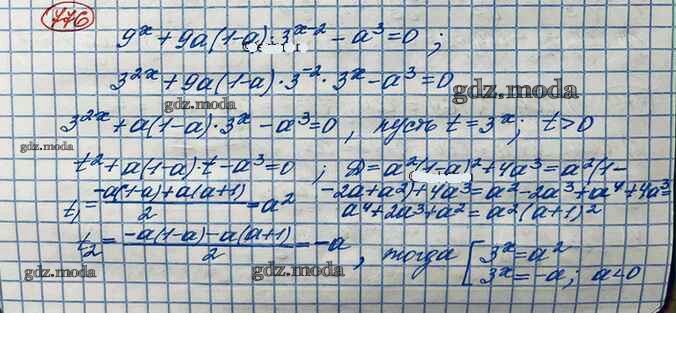 776
9^x + 9a(1-a)·3^{x-2} - a^3 = 0 ;
3^{2x} + 9a(1-a)·3^{-2}·3^x - a^3 = 0
gdz.moda
gdz.moda
3^{2x} + a(1-a)·3^x - a^3 = 0 , пусть t = 3^x ; t > 0
gdz.moda
t^2 + a(1-a)·t - a^3 = 0 ; D = a^2(1-a)^2 + 4a^3 = a^2(1-
-2a + a^2) + 4a^3 = a^2 - 2a^3 + a^4 + 4a^3 =
t_1 = \frac{-a(1-a) + a(a+1)}{2} = a^2
a^4 + 2a^3 + a^2 = a^2(a+1)^2
t_2 = \frac{-a(1-a) - a(a+1)}{2} = -a , тогда [ 3^x = a^2
3^x = -a ; a < 0
gdz.moda
gdz.moda
gdz.moda